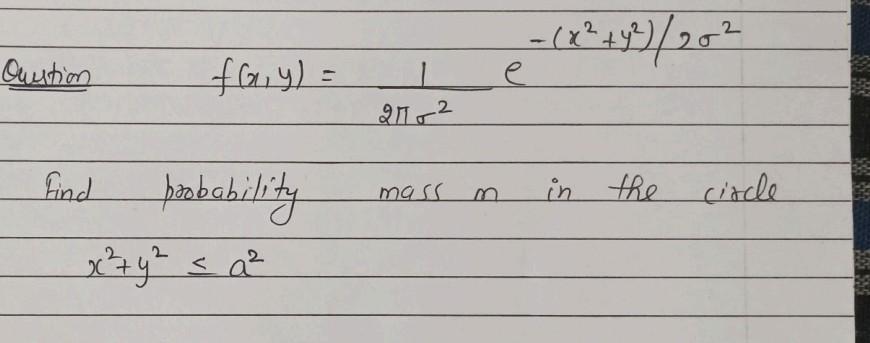 Question f(x,y) = 1/2πσ² e^-(x²+y²)/2σ²
Find probability mass m in the circle
x²+y² ≤ a²